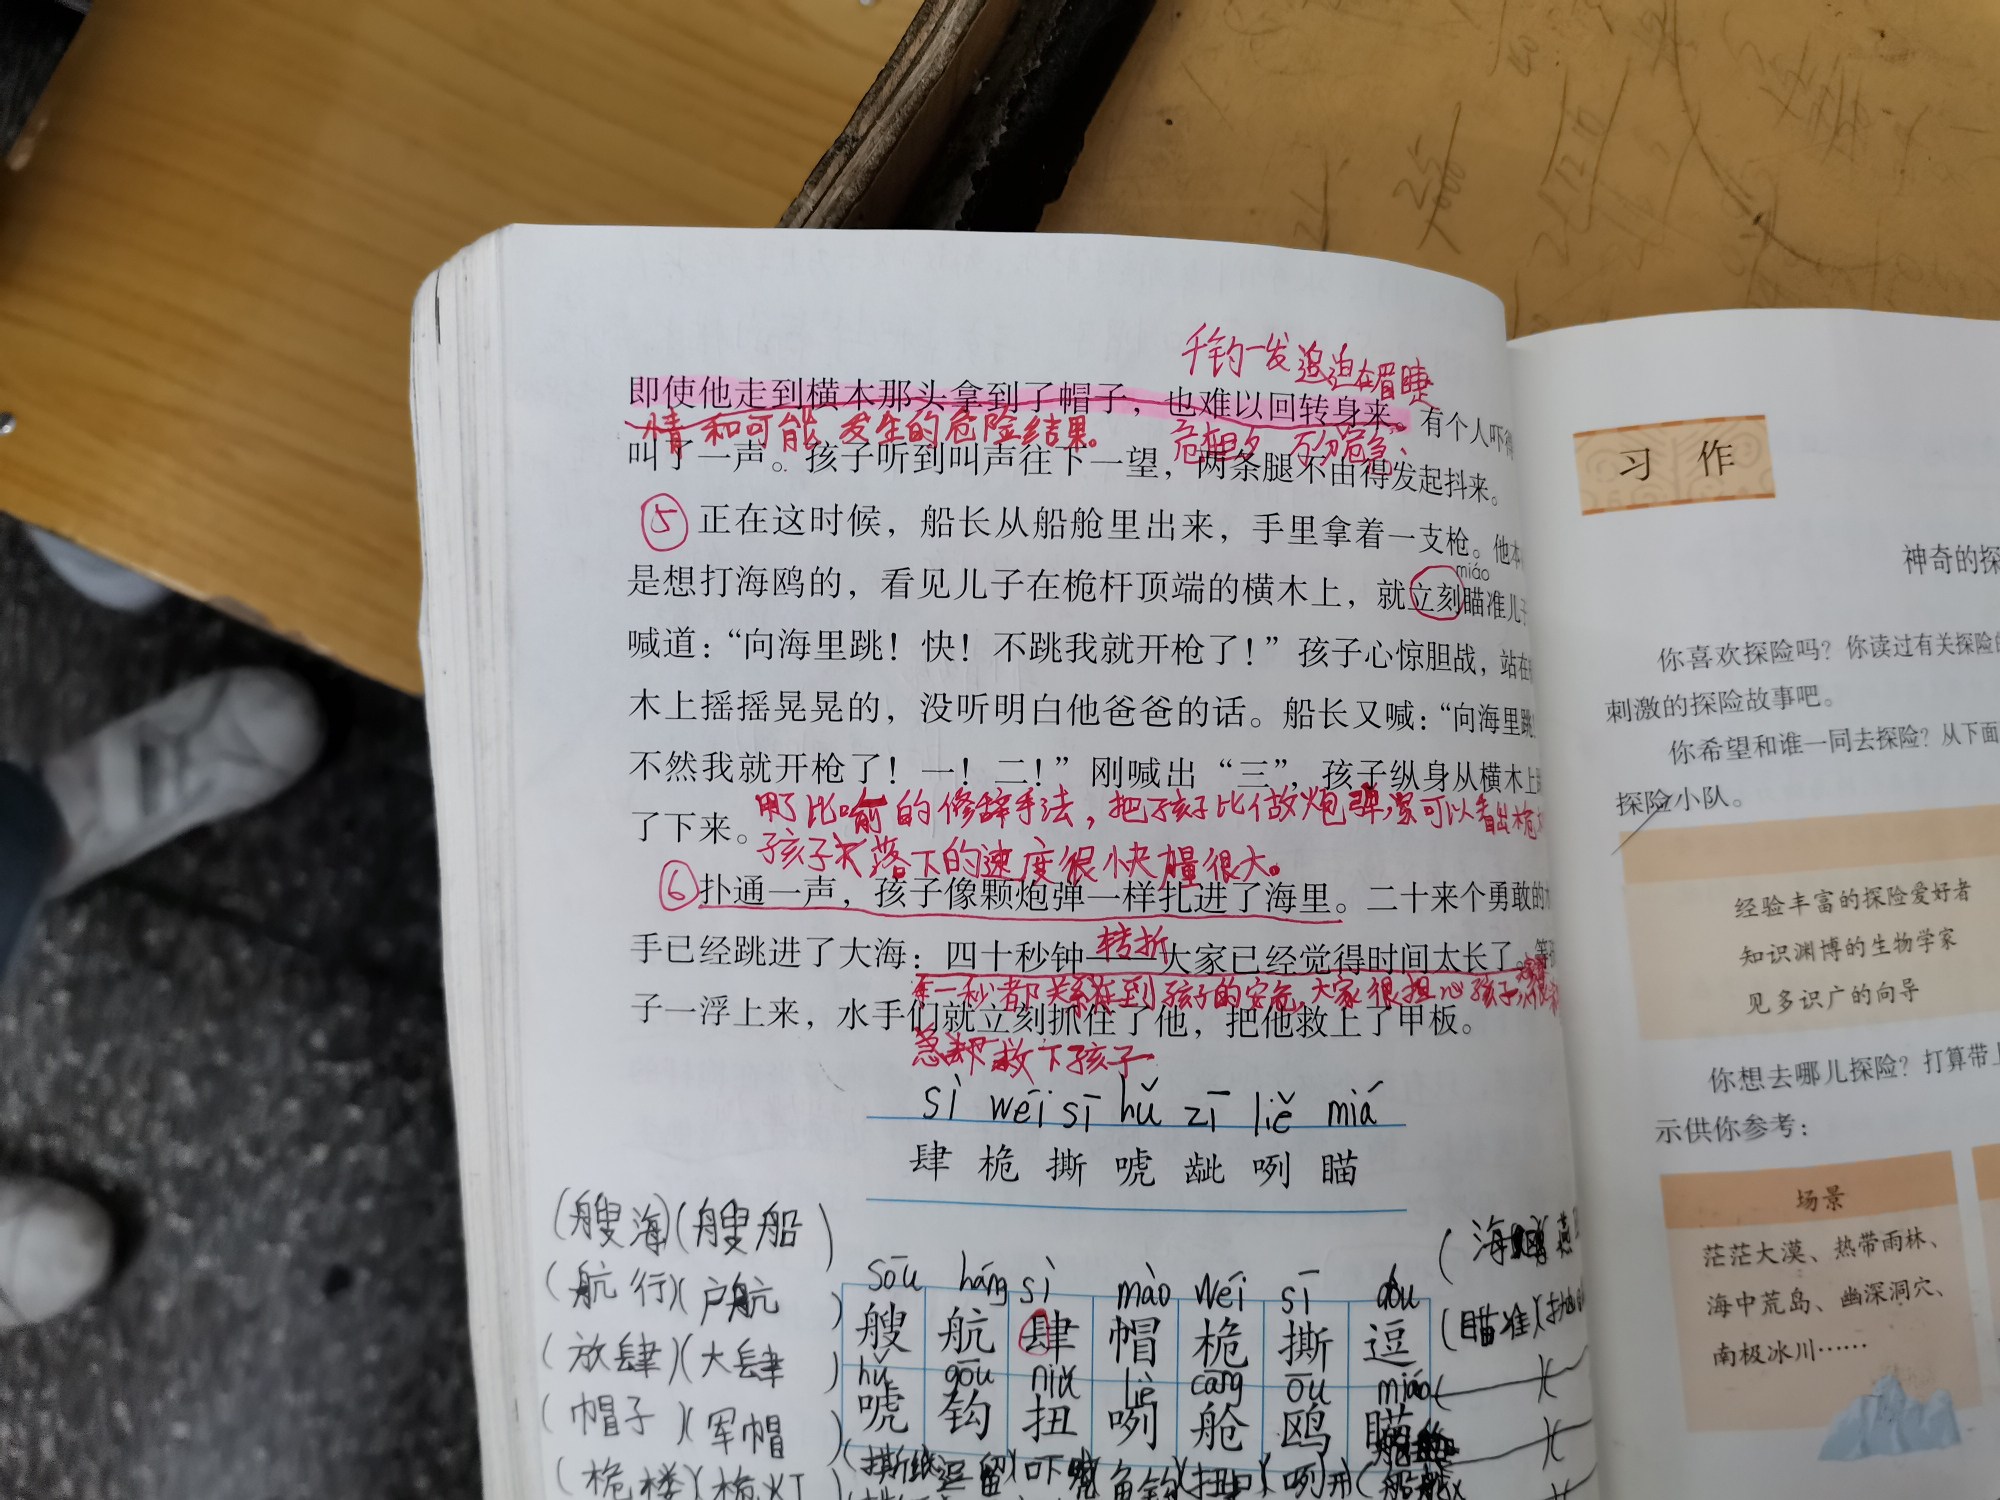 千钧一发 迫在眉睫
即使他走到横木那头拿到了帽子，也难以回转身来。有个人吓得
情和可能发生的危险结果。 危在旦夕 万分危急
叫了一声。孩子听到叫声往下一望，两条腿不由得发起抖来。
⑤正在这时候，船长从船舱里出来，手里拿着一支枪。他本
miáo
是想打海鸥的，看见儿子在桅杆顶端的横木上，就立刻瞄准儿子
喊道：“向海里跳！快！不跳我就开枪了！”孩子心惊胆战，站在
木上摇摇晃晃的，没听明白他爸爸的话。船长又喊：“向海里跳！
不然我就开枪了！一！二！”刚喊出“三”，孩子纵身从横木上
用了比喻的修辞手法，把孩子比做炮弹，可以看出
了下来。
孩子落下的速度很快力量很大。
⑥扑通一声，孩子像颗炮弹一样扎进了海里。二十来个勇敢的
转折
手已经跳进了大海：四十秒钟——大家已经觉得时间太长了。等
一秒都关系到孩子的安危，大家很担心孩子
子一浮上来，水手们就立刻抓住了他，把他救上了甲板。
救下孩子
sì wéi sī hǔ zī liě miá
肆 桅 撕 唬 龇 咧 瞄
(艘海)(艘船)
(航行)(户航)
(放肆)(大肆)
(帽子)(军帽)
(桅楼)(桅灯
sōu háng sì mào wéi sī dòu
艘 航 肆 帽 桅 撕 逗
hǔ gōu niǔ liě cāng ōu miáo
唬 钩 扭 咧 舱 鸥 瞄
(海
(瞄准)(
习作
神奇的探
你喜欢探险吗？你读过有关探险的
刺激的探险故事吧。
你希望和谁一同去探险？从下面
探险小队。
经验丰富的探险爱好者
知识渊博的生物学家
见多识广的向导
你想去哪儿探险？打算带上
示供你参考：
场景
茫茫大漠、热带雨林、
海中荒岛、幽深洞穴、
南极冰川……